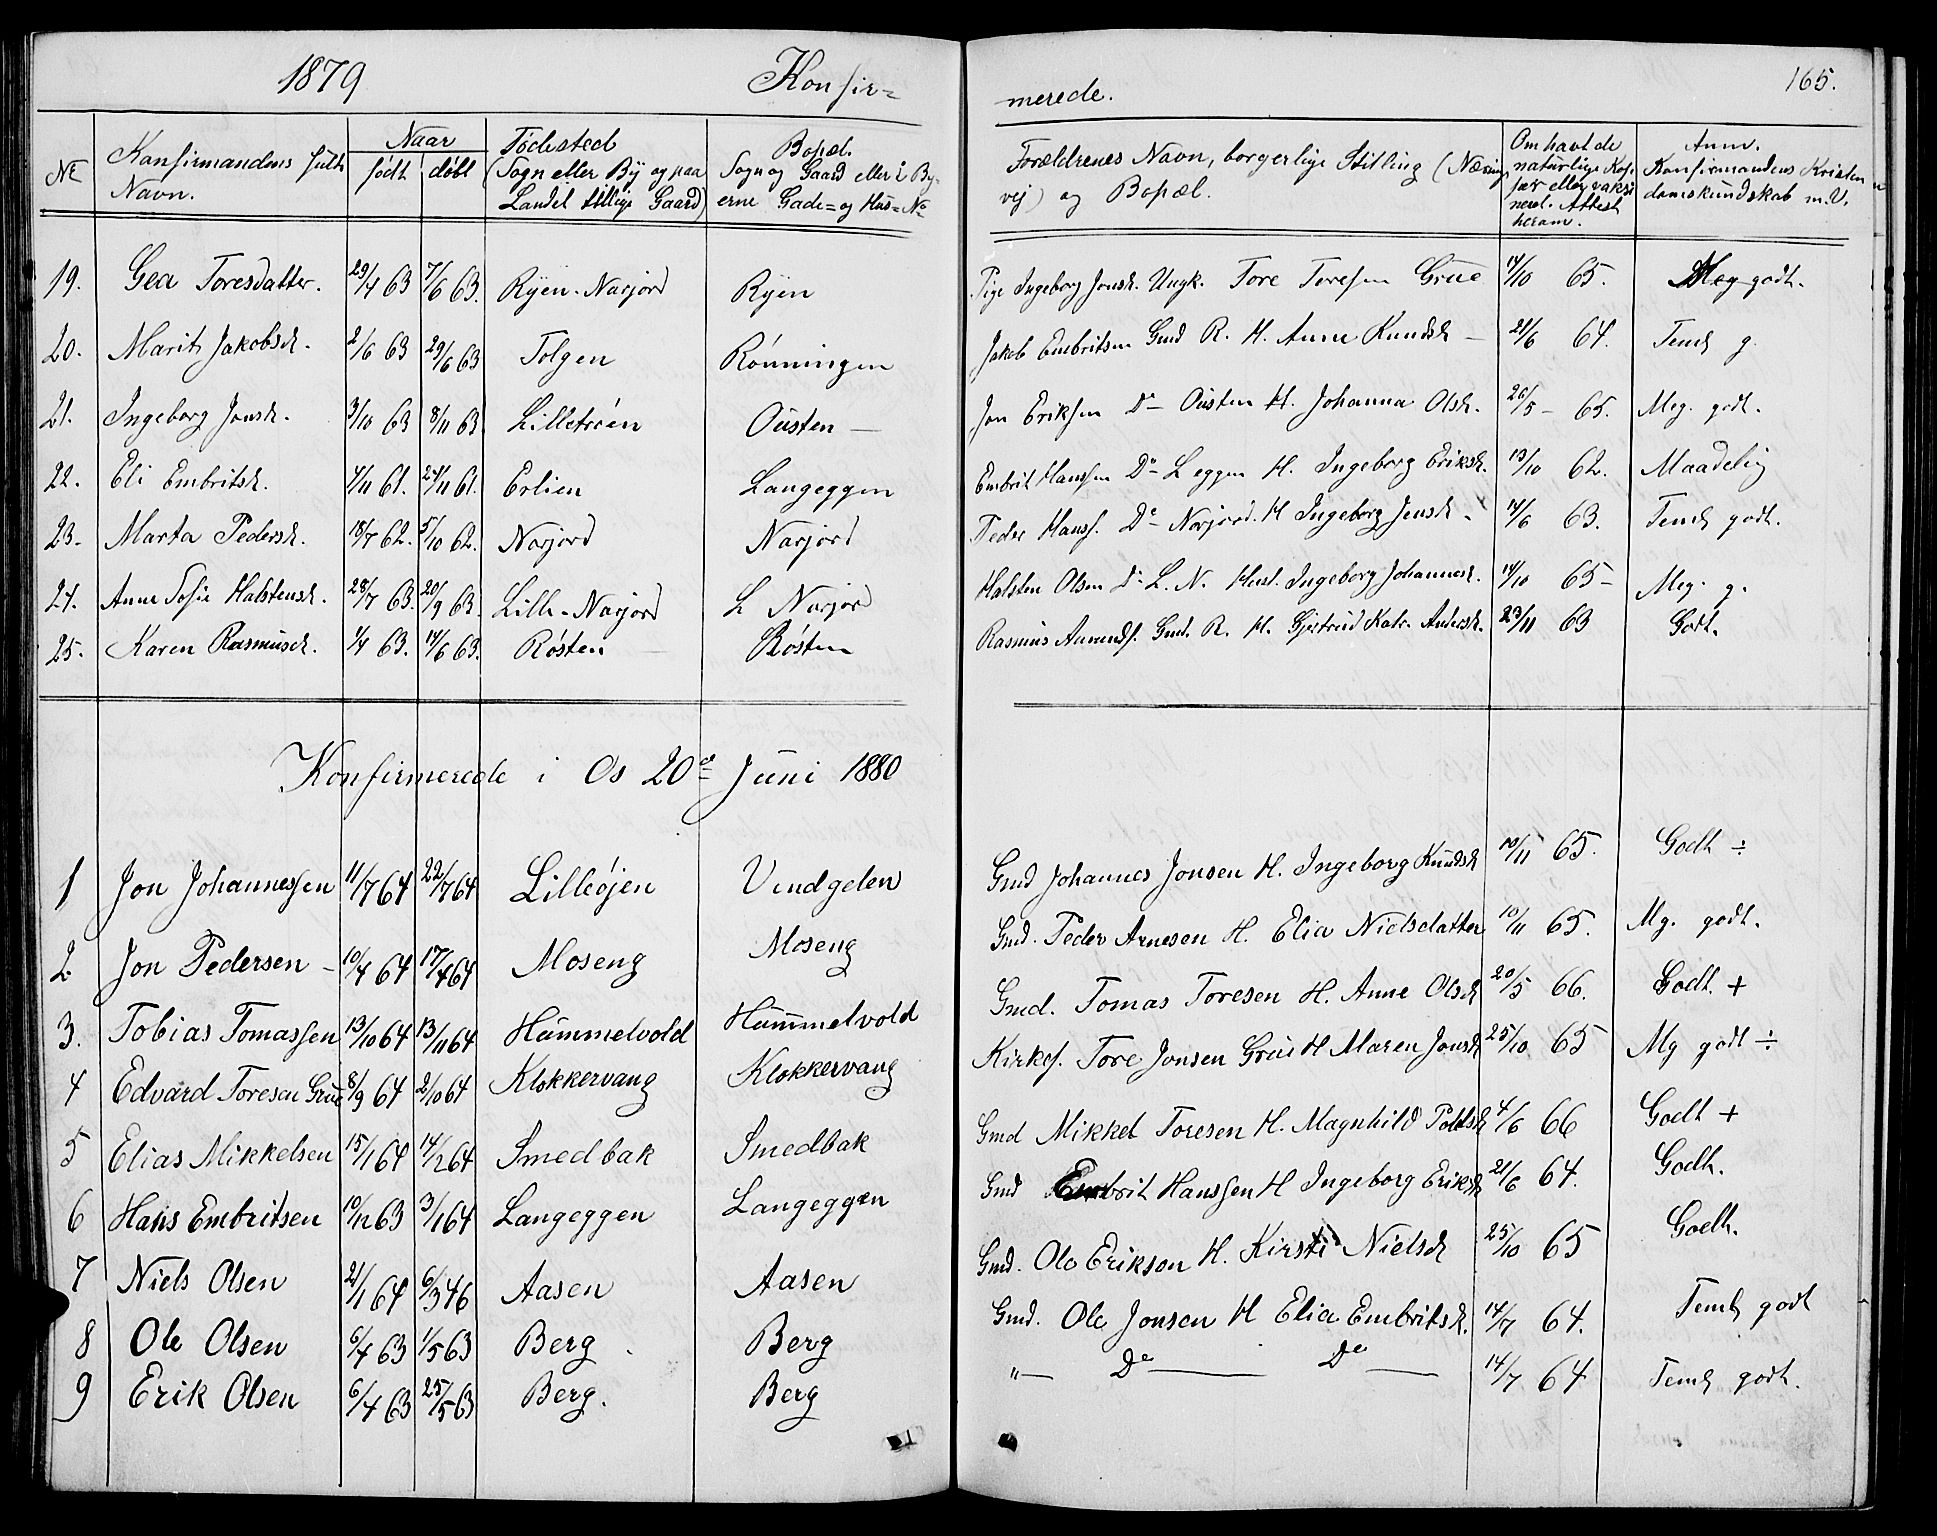 1879 Konfir=
merede. 165.
No Konfirmandens fulde Navn. Naar født døbt Fødested (Sogn eller By og paa Landet tillige Gaard) Bopæl. Sogn og Gaard eller i Byerne Gade= og Hus=No
Forældrenes Navn, borgerlige Stilling (Næringsvej) og Bopæl. Om havt de naturlige Kopper eller vaksineret. Attest herom. Anm. Konfirmandens Kristendomskundskab m.V.
19. Gea Toresdatter. 29/4 63 7/6 63. Ryen-Narjord Ryen Pige Ingeborg Jonsd. Ungk. Tore Toresen Grue 14/10 65. Meg godt.
20. Marit Jakobsd. 2/6 63 29/6 63 Tolgen Rønningen Jakob Embritsen Gmd R. H. Anne Knudsd — 21/6 64. Teml g.
21. Ingeborg Jonsd. 3/10 63 8/11 63. Lilletrøen Ousten — Jon Eriksen Do — Ousten H. Johanna Olsd. 26/5 — 65. Meg. godt.
22. Eli Embritsd. 4/11 61. 24/11 61. Erlien Langeggen Embrit Hansen Do — L eggen H. Ingeborg Eriksd. 13/10 62. Maadelig
23. Marta Pedersd. 18/7 62. 5/10 62. Narjord Narjord Peder Hans. Do — Narjord. H Ingeborg Jensd. 14/6 63. Teml godt.
24. Anne Sofie Halstensd. 28/7 63. 20/9 63. Lille-Narjord L Narjord Halsten Olsen Do L. N. Hust. Ingeborg Johannesd. 14/10 65 — Meg. g.
25. Karen Rasmusd. 1/4 63. 14/6 63. Røsten — Røsten Rasmus Aamunds. Gmd. R. H. Gjertrud Katr. Andersd. 23/11 63 Godt.
Konfirmerede i Os 20de Juni 1880
1 Jon Johannessen 11/7 64 22/7 64 Lilleøjen Vendgelen Gmd Johannes Jonsen H. Ingeborg Knudsd 10/11 65. Godt ÷
2. Jon Pedersen — 10/4 64 17/4 64 Moseng Moseng Gmd. Peder Arnesen H. Elia Nielsdatter 10/11 65. Mg. godt.
3. Tobias Tomassen 13/10 64 13/11 64 Hummelvold Hummelvold Gmd. Tomas Toresen H. Anne Olsd 20/5 66. Godt +
4 Edvard Toresen Grue 8/9 64 2/10 64 Klokkervang Klokkervang Kirkes. Tore Jonsen Grue H Maren Jonsd 25/10 65 Mg godt ÷
5 Elias Mikkelsen 15/1 64 14/2 64 Smedbak Smedbak Gmd Mikkel Toresen H. Magnhild Polsd 4/6 66 Godt +
6 Hans Embritsen 10/12 63 3/1 64 Langeggen Langeggen Gmd Embrit Hanssen H Ingeborg Eriksd 21/6 64. Godt.
7 Niels Olsen 2/1 64 6/3 46 Aasen Aasen Gmd. Ole Erikson H. Kirsti Nielsd 25/10 65 Godt.
8 Ole Olsen 6/4 63 1/5 63 Berg Berg Gmd. Ole Jonsen H Elia Embritsd. 14/7 64. Teml godt
9 Erik Olsen 6/4 63 25/5 63 Berg. Berg „ — Do — Do — 14/7 64 Teml godt.